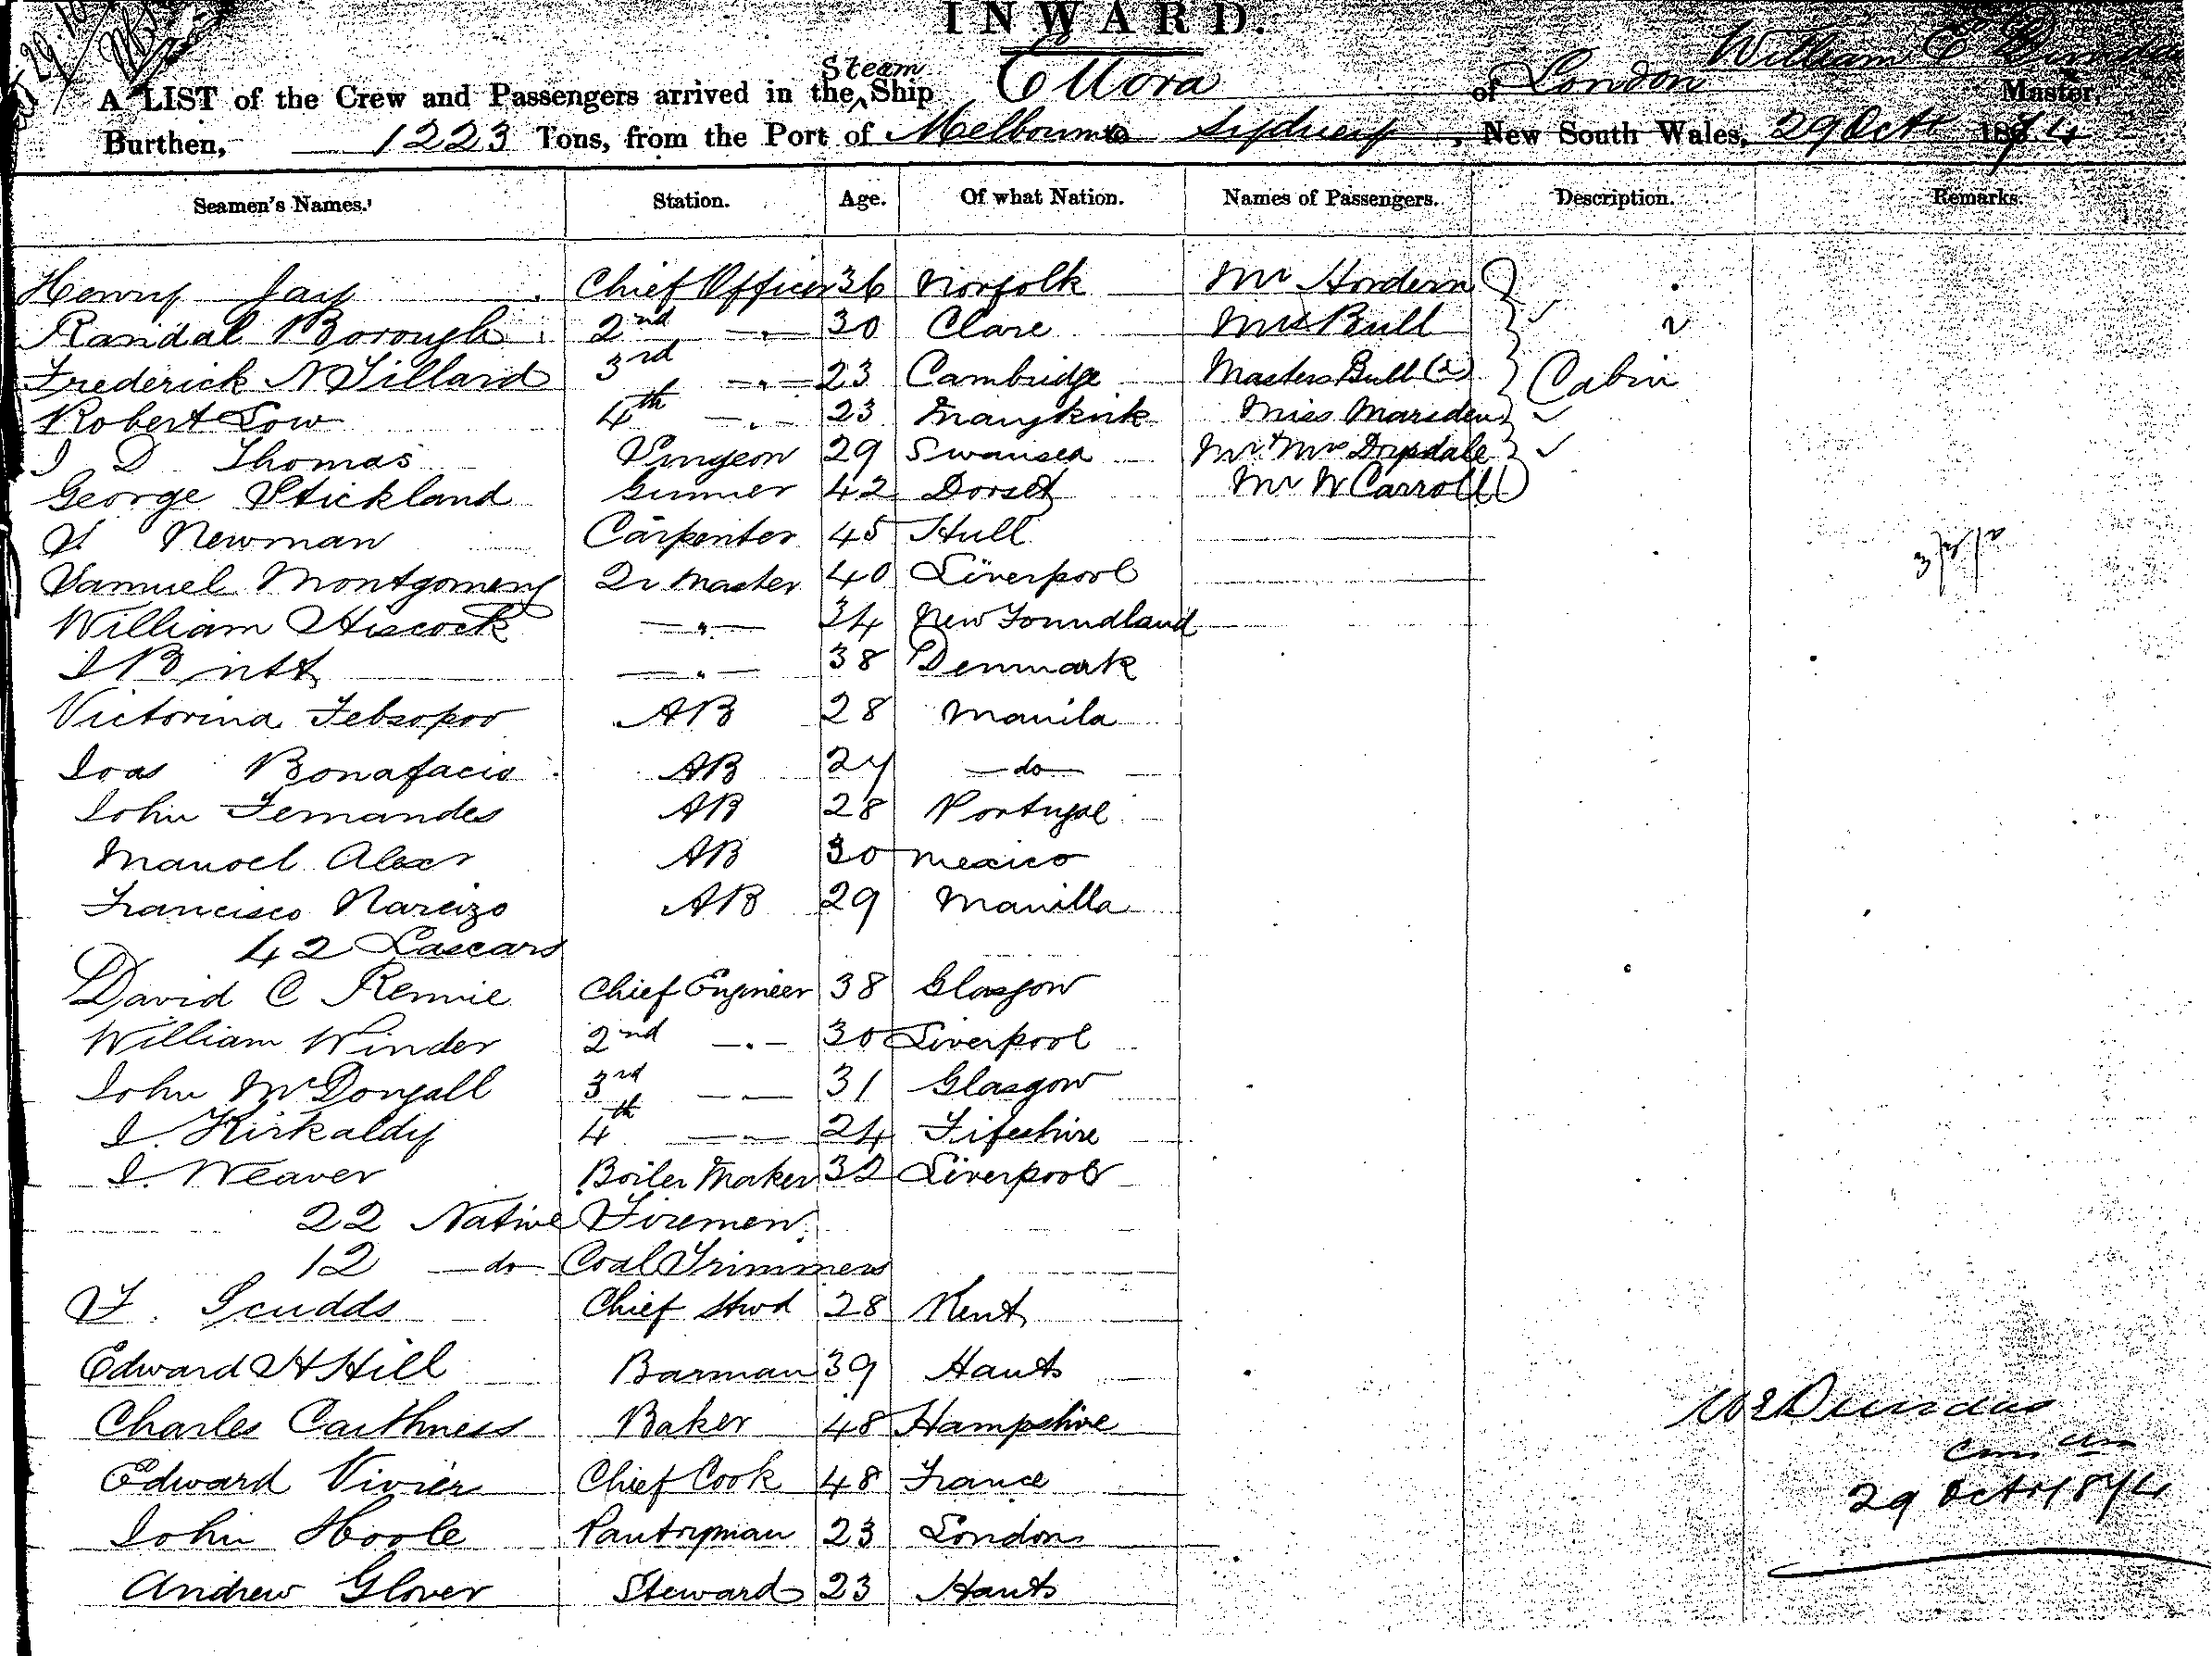 INWARD.
A LIST of the Crew and Passengers arrived in the Steam Ship Ellora of London William E Dundas Master,
Burthen, 1223 Tons, from the Port of Melbourne to Sydney, New South Wales, 29 Octr 1874
Seamen's Names. Station. Age. Of what Nation. Names of Passengers. Description. Remarks.
Henry Jay Chief Officer 36 Norfolk Mr Hordern
Randal Borough 2nd —"— 30 Clare Mrs Bull
Frederick N Tillard 3rd —"— 23 Cambridge Masters Bull (2) Cabin
Robert Low 4th —"— 23 Marykirk Miss Marsden
I D Thomas Surgeon 29 Swansea Mr & Mrs Drysdale
George Stickland Gunner 42 Dorset Mr W Carroll
Newman Carpenter 45 Hull
Samuel Montgomery Qr Master 40 Liverpool
William Hiscock —"— 34 New Foundland
—"— 38 Denmark
Victorina Febsopoo AB 28 Manila
Ioas Bonafacio AB 24 —do—
John Fernandes AB 28 Portugal
Manoel Alexr AB 30 Mexico
Francisco Narcizo AB 29 Manilla
42 Lascars
David C Rennie Chief Engineer 38 Glasgow
William Winder 2nd —"— 30 Liverpool
John McDougall 3rd —"— 31 Glasgow
I. Kirkaldy 4th —"— 24 Fifeshire
I. Weaver Boiler Maker 32 Liverpool
22 Native Firemen
12 —do— Coal Trimmers
F. Scudds Chief Stwd 28 Kent
Edward H Hill Barman 39 Hants
Charles Caithness Baker 48 Hampshire
Edward Vivier Chief Cook 48 France
John Hoole Pantryman 23 London
Andrew Glover Steward 23 Hants
WE Dundas
29 Octr 1874